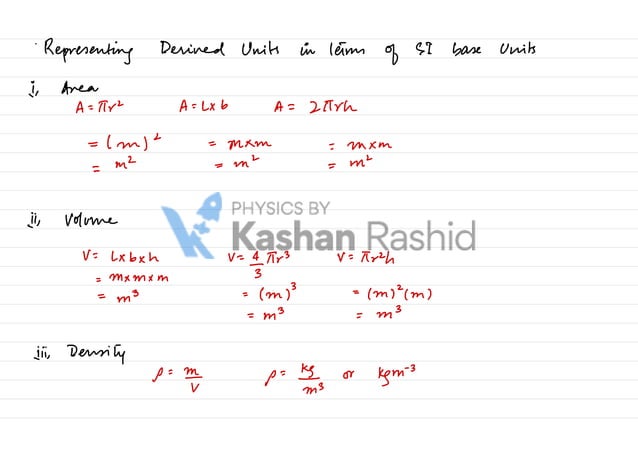 Representing Derived Units in terms of SI base Units
i, Area
A = πr² A = L×b A = 2πrh
= (m)² = m×m = m×m
= m² = m² = m²
PHYSICS BY
ii, Volume
Kashan Rashid
V = L×b×h V = 4/3 πr³ V = πr²h
= m×m×m = (m)³ = (m)²(m)
= m³ = m³ = m³
iii, Density
ρ = m/V ρ = kg/m³ or kgm⁻³